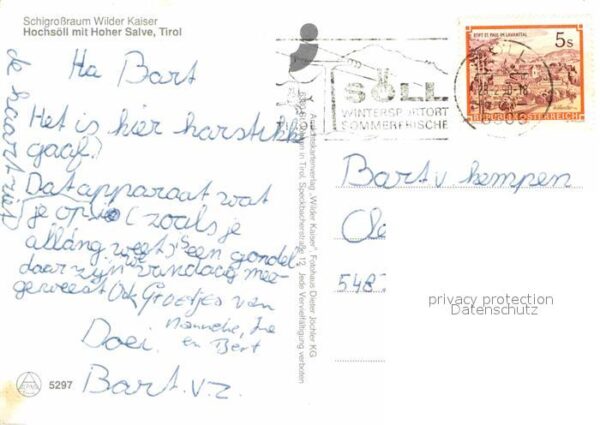 Schigroßraum Wilder Kaiser
Hochsöll mit Hoher Salve, Tirol
Ha Bart
Het is hier harstikke
gaaf!
Dat apparaat wat
je op (zoals je
allang weet) is een gondel
daar zijn we vandaag mee
geweest Ook Groetjes van
en Bert
Doei.
Bart. v. z.
de kaart
5297
Ansichtskartenverlag „Wilder Kaiser“, Fotohaus Dieter Jöchler KG
in Tirol, Speckbacherstraße 12 Jede Vervielfältigung verboten
SÖLL
WINTERSPORTORT
SOMMERFRISCHE
STIFT ST. PAUL IM LAVANTTAL
5s
REPUBLIK ÖSTERREICH
Bart v kempen
548
privacy protection
Datenschutz